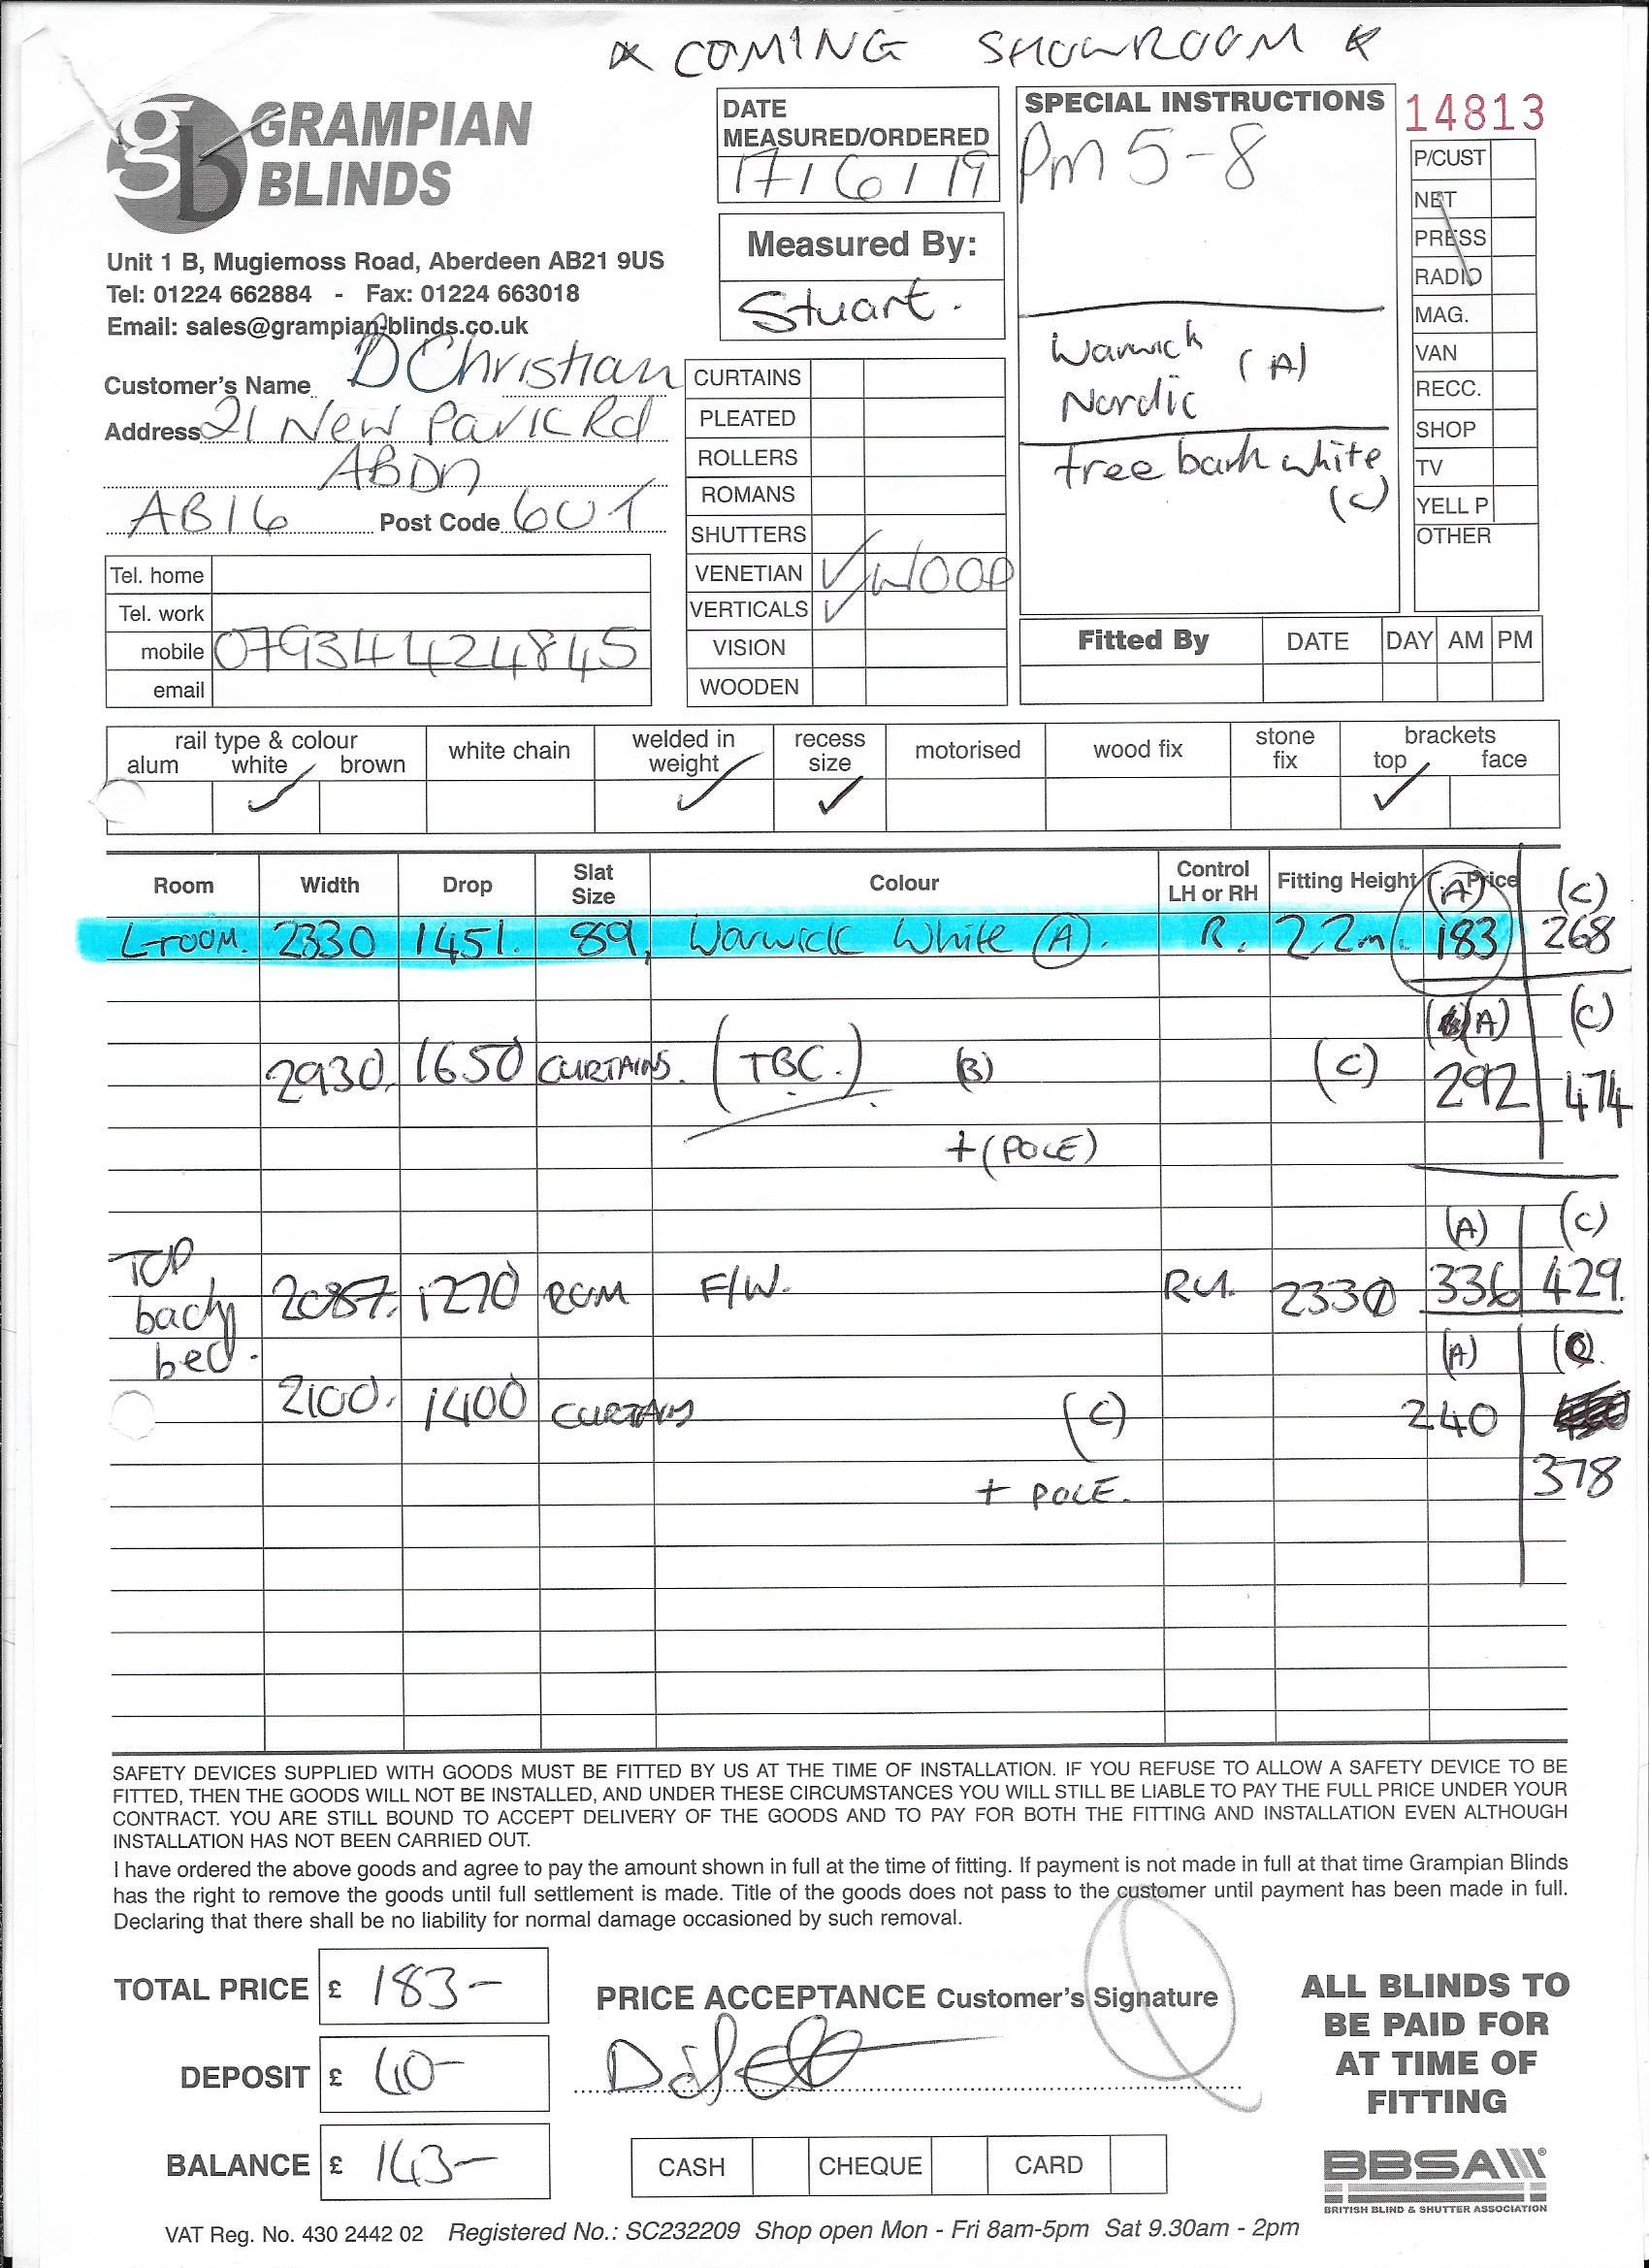 * COMING SHOWROOM *
gb GRAMPIAN
BLINDS
Unit 1 B, Mugiemoss Road, Aberdeen AB21 9US
Tel: 01224 662884 - Fax: 01224 663018
Email: sales@grampian-blinds.co.uk
Customer's Name D Christian
Address 21 New Park Rd
ABDN
AB16 Post Code 6UT
Tel. home
Tel. work
mobile 07934424845
email
DATE
MEASURED/ORDERED
17/6/19
Measured By:
Stuart.
CURTAINS
PLEATED
ROLLERS
ROMANS
SHUTTERS
VENETIAN ✓ WOOD
VERTICALS ✓
VISION
WOODEN
SPECIAL INSTRUCTIONS
Pm 5-8
Warwick (A)
Nordic
tree bark white
(C)
14813
P/CUST
NET
PRESS
RADIO
MAG.
VAN
RECC.
SHOP
TV
YELL P
OTHER
Fitted By DATE DAY AM PM
rail type & colour white chain welded in weight recess size motorised wood fix stone fix brackets
alum white brown top face
✓ ✓ ✓ ✓
Room Width Drop Slat Size Colour Control LH or RH Fitting Height Price (A) (C)
L-room. 2330 1451. 89, Warwick White (A). R. 2.2m. 183 268
(A) (C)
2930. 1650 CURTAINS. (TBC.) (B) (C) 292 474
+ (POLE)
(A) (C)
TOP back bed. 2087. 1270 ROM F/W. RH. 2330 336 429.
(A) (C)
2100. 1400 CURTAINS (C) 240
378
+ POLE.
SAFETY DEVICES SUPPLIED WITH GOODS MUST BE FITTED BY US AT THE TIME OF INSTALLATION. IF YOU REFUSE TO ALLOW A SAFETY DEVICE TO BE
FITTED, THEN THE GOODS WILL NOT BE INSTALLED, AND UNDER THESE CIRCUMSTANCES YOU WILL STILL BE LIABLE TO PAY THE FULL PRICE UNDER YOUR
CONTRACT. YOU ARE STILL BOUND TO ACCEPT DELIVERY OF THE GOODS AND TO PAY FOR BOTH THE FITTING AND INSTALLATION EVEN ALTHOUGH
INSTALLATION HAS NOT BEEN CARRIED OUT.
I have ordered the above goods and agree to pay the amount shown in full at the time of fitting. If payment is not made in full at that time Grampian Blinds
has the right to remove the goods until full settlement is made. Title of the goods does not pass to the customer until payment has been made in full.
Declaring that there shall be no liability for normal damage occasioned by such removal.
TOTAL PRICE £ 183-
DEPOSIT £ 40-
BALANCE £ 143-
PRICE ACCEPTANCE Customer's Signature
CASH CHEQUE CARD
ALL BLINDS TO
BE PAID FOR
AT TIME OF
FITTING
BBSA
BRITISH BLIND & SHUTTER ASSOCIATION
VAT Reg. No. 430 2442 02 Registered No.: SC232209 Shop open Mon - Fri 8am-5pm Sat 9.30am - 2pm